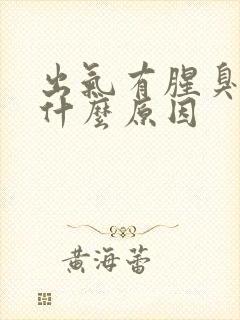 出氣有腥臭
什麼原因
黃海蕾